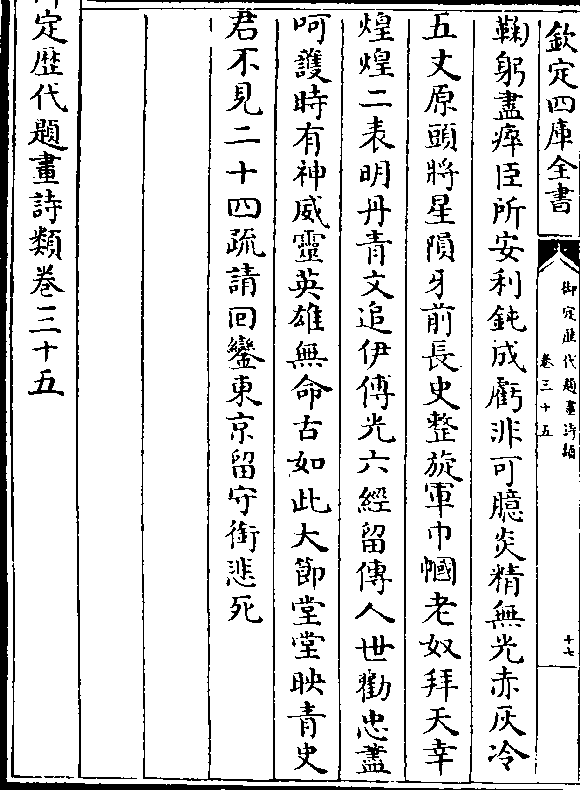 欽定四庫全書
御定歴代題畫詩類
卷三十五
十七
鞠躬盡瘁臣所安利鈍成虧非可臆炎精無光赤灰冷
五丈原頭將星隕牙前長史整旋軍巾幗老奴拜天幸
煌煌二表明丹青文追伊傅光六經留傳人世勸忠藎
呵護時有神威靈英雄無命古如此大節堂堂映青史
君不見二十四疏請回鑾東京留守銜悲死
御定歴代題畫詩類卷三十五